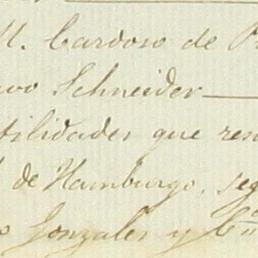 M. Cardoso de P
vo Schneider
tilidades que res
de Hamburgo, seg
o Gonzales y Cⁱᵃ